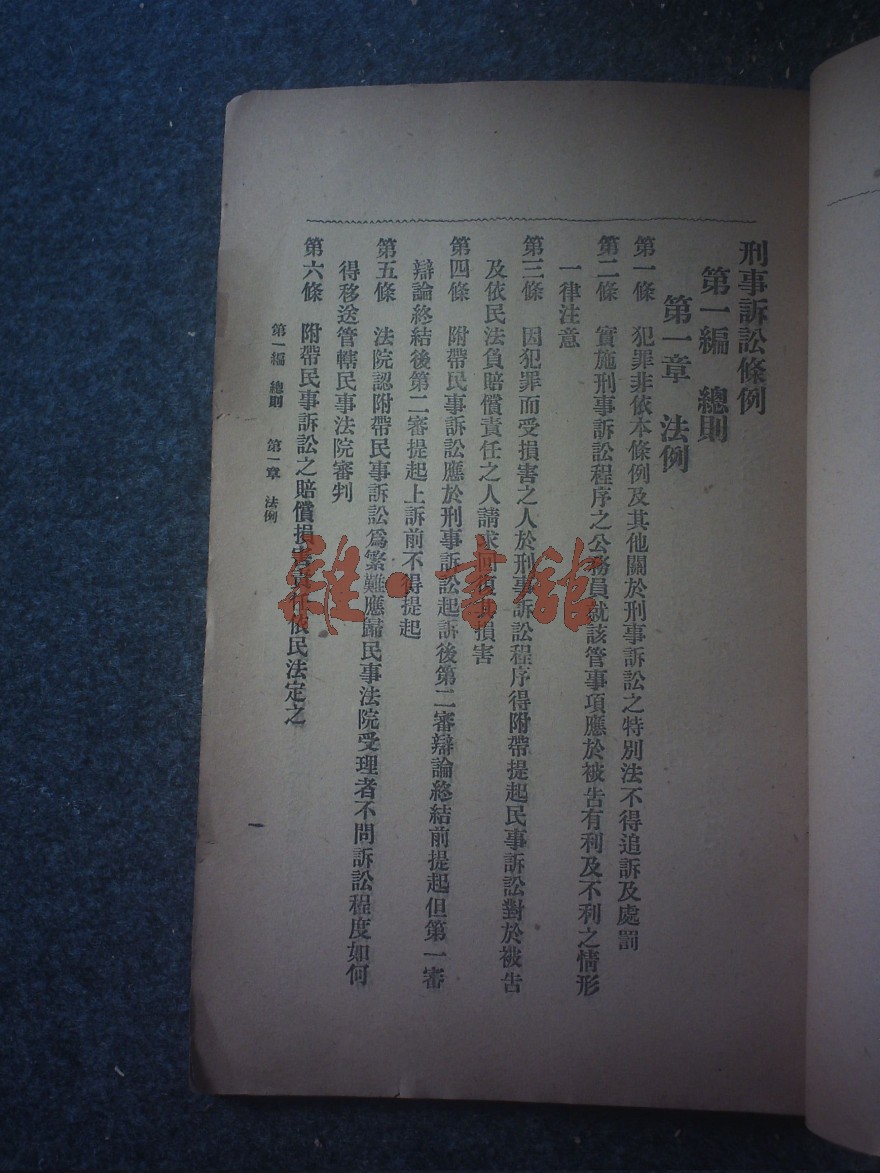 刑事訴訟條例
第一編　總則
第一章　法例
第一條　犯罪非依本條例及其他關於刑事訴訟之特別法不得追訴及處罰
第二條　實施刑事訴訟程序之公務員就該管事項應於被告有利及不利之情形
一律注意
第三條　因犯罪而受損害之人於刑事訴訟程序得附帶提起民事訴訟對於被告
及依民法負賠償責任之人請求回復其損害
第四條　附帶民事訴訟應於刑事訴訟起訴後第二審辯論終結前提起但第一審
辯論終結後第二審提起上訴前不得提起
第五條　法院認附帶民事訴訟爲繁難應歸民事法院受理者不問訴訟程度如何
得移送管轄民事法院審判
第六條　附帶民事訴訟之賠償損害責任依民法定之
第一編　總則　第一章　法例
一
雜·書館